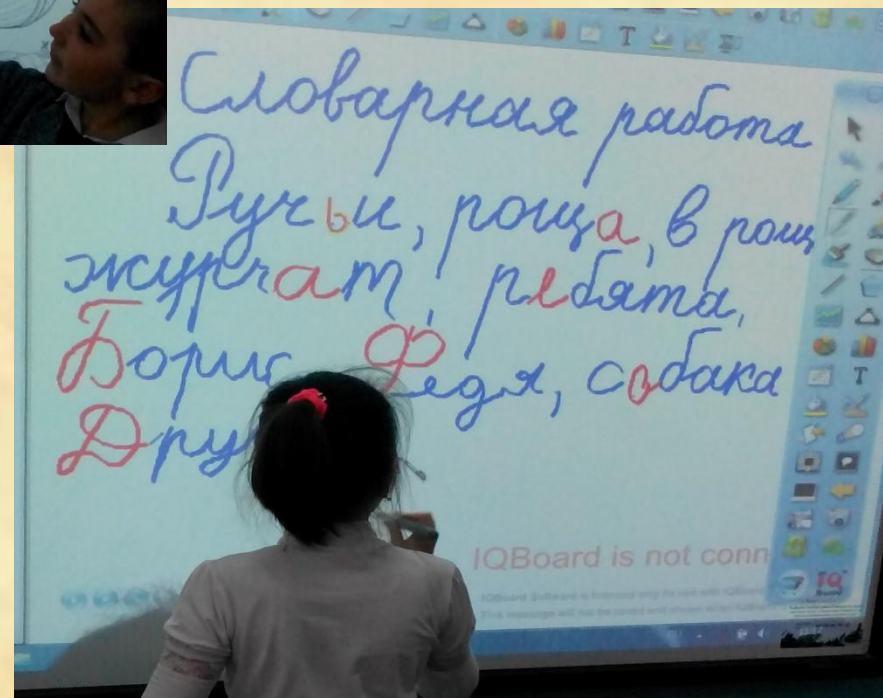 Словарная работа
Ручьи, роща, в рощ
журчат, ребята,
Борис Федя, собака
Дру
IQBoard is not conn